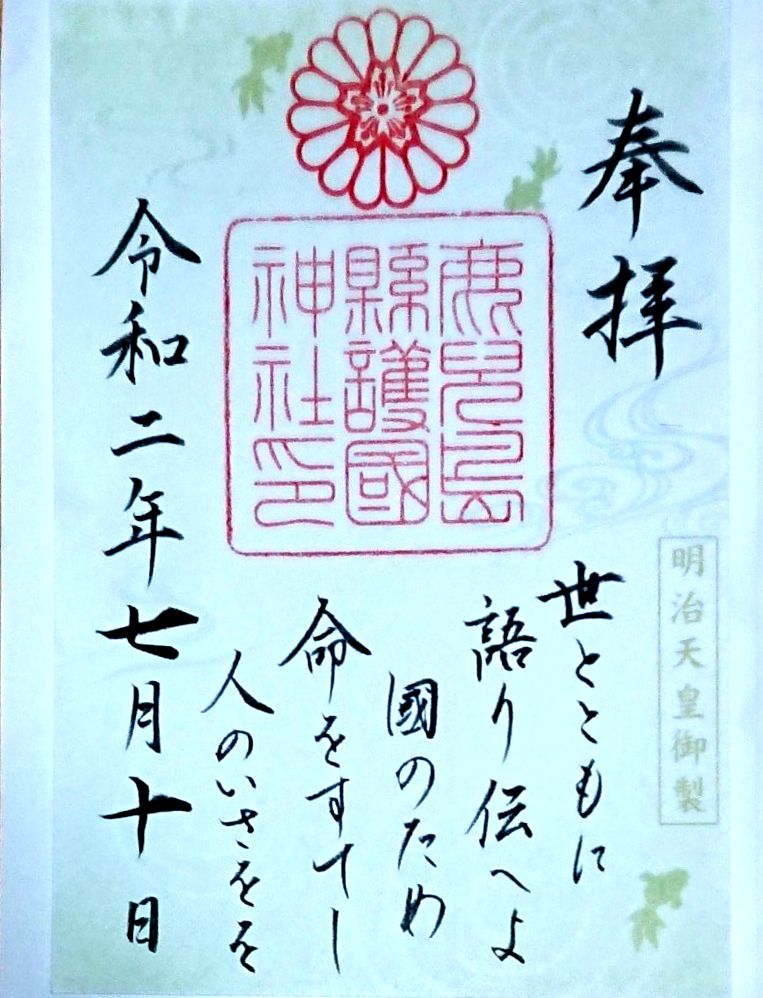 奉拝
鹿児島
縣護國
神社印
明治天皇御製
世とともに
語り伝へよ
國のため
命をすてし
人のいさをを
令和二年七月十日